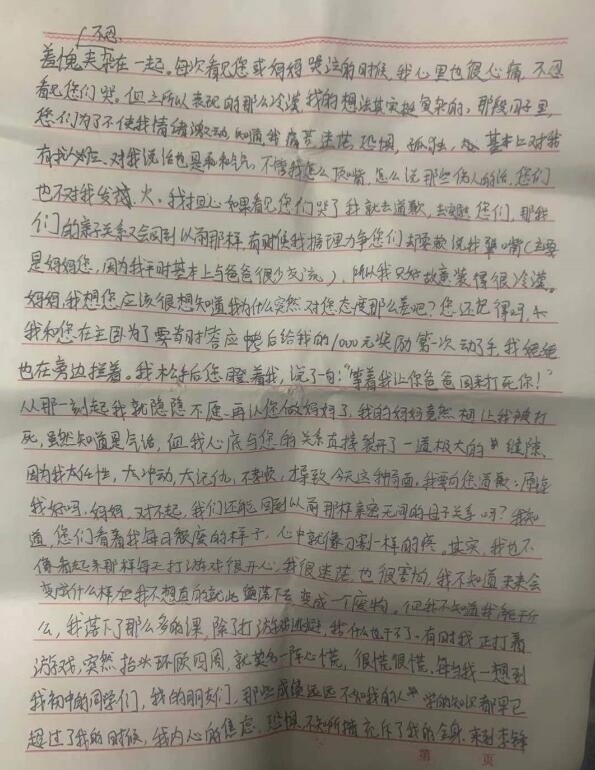 不忍
羞愧夹杂在一起。每次看见您或妈妈哭泣的时候,我心里也很心痛,不忍
看见您们哭。但之所以表现的那么冷漠,我的想法其实挺复杂的,那段日子里,
您们为了不使我情绪激动,知道我痛苦,迷茫,恐惧,孤独,基本上对我
有求必应、对我说话也是和和气气,不管我怎么顶嘴,怎么说那些伤人的话,您们
也不对我发火。我担心如果看见您们哭了我就去道歉,去您们,那我
们的亲子关系又会回到以前那样,有时候我据理力争您们却要说我嘴(主要
是妈妈您,因为我平时基本上与爸爸很少交流),所以我只好故意装得很冷漠。
妈妈,我想您应该很想知道我为什么突然对您态度那么差吧?您还记得吗,
我和您在主卧为了要当时答应后给我的1000元奖励第一次动了手,我
也在旁边拦着。我松手后您瞪着我,说了一句:“等着我让你爸爸回来打死你!”
从那一刻起我就隐隐不愿再认您做妈妈了,我的妈妈竟然想让我被打
死,虽然知道是气话,但我心底与您的关系直接裂开了一道极大的缝隙,
因为我太任性,太冲动,太记仇,不,才导致今天这种局面,我要向您道歉:原谅
我好吗,妈妈,对不起,我们还能回到以前那样亲密无间的母子关系吗?我知
道,您们看着我每日颓废的样子,心中就像刀割一样的疼。其实,我也不
像看起来那样每天打游戏很开心,我很迷茫,也很害怕,我不知道未来会
变成什么样,但我不想真的就此堕落下去,变成一个废物。但我不知道我能干什
么,我落下了那么多的课,除了打游戏,我什么也干不了。有时我正打着
游戏,突然抬头环顾四周,就莫名一阵心慌,很慌很慌,每当我一想到
我初中的同学们,我的朋友们,那些成绩远远不如我的人学的知识都早已
超过了我的时候,我内心的焦虑,恐惧,不知所措充斥了我的全身,来到李锋
第 页